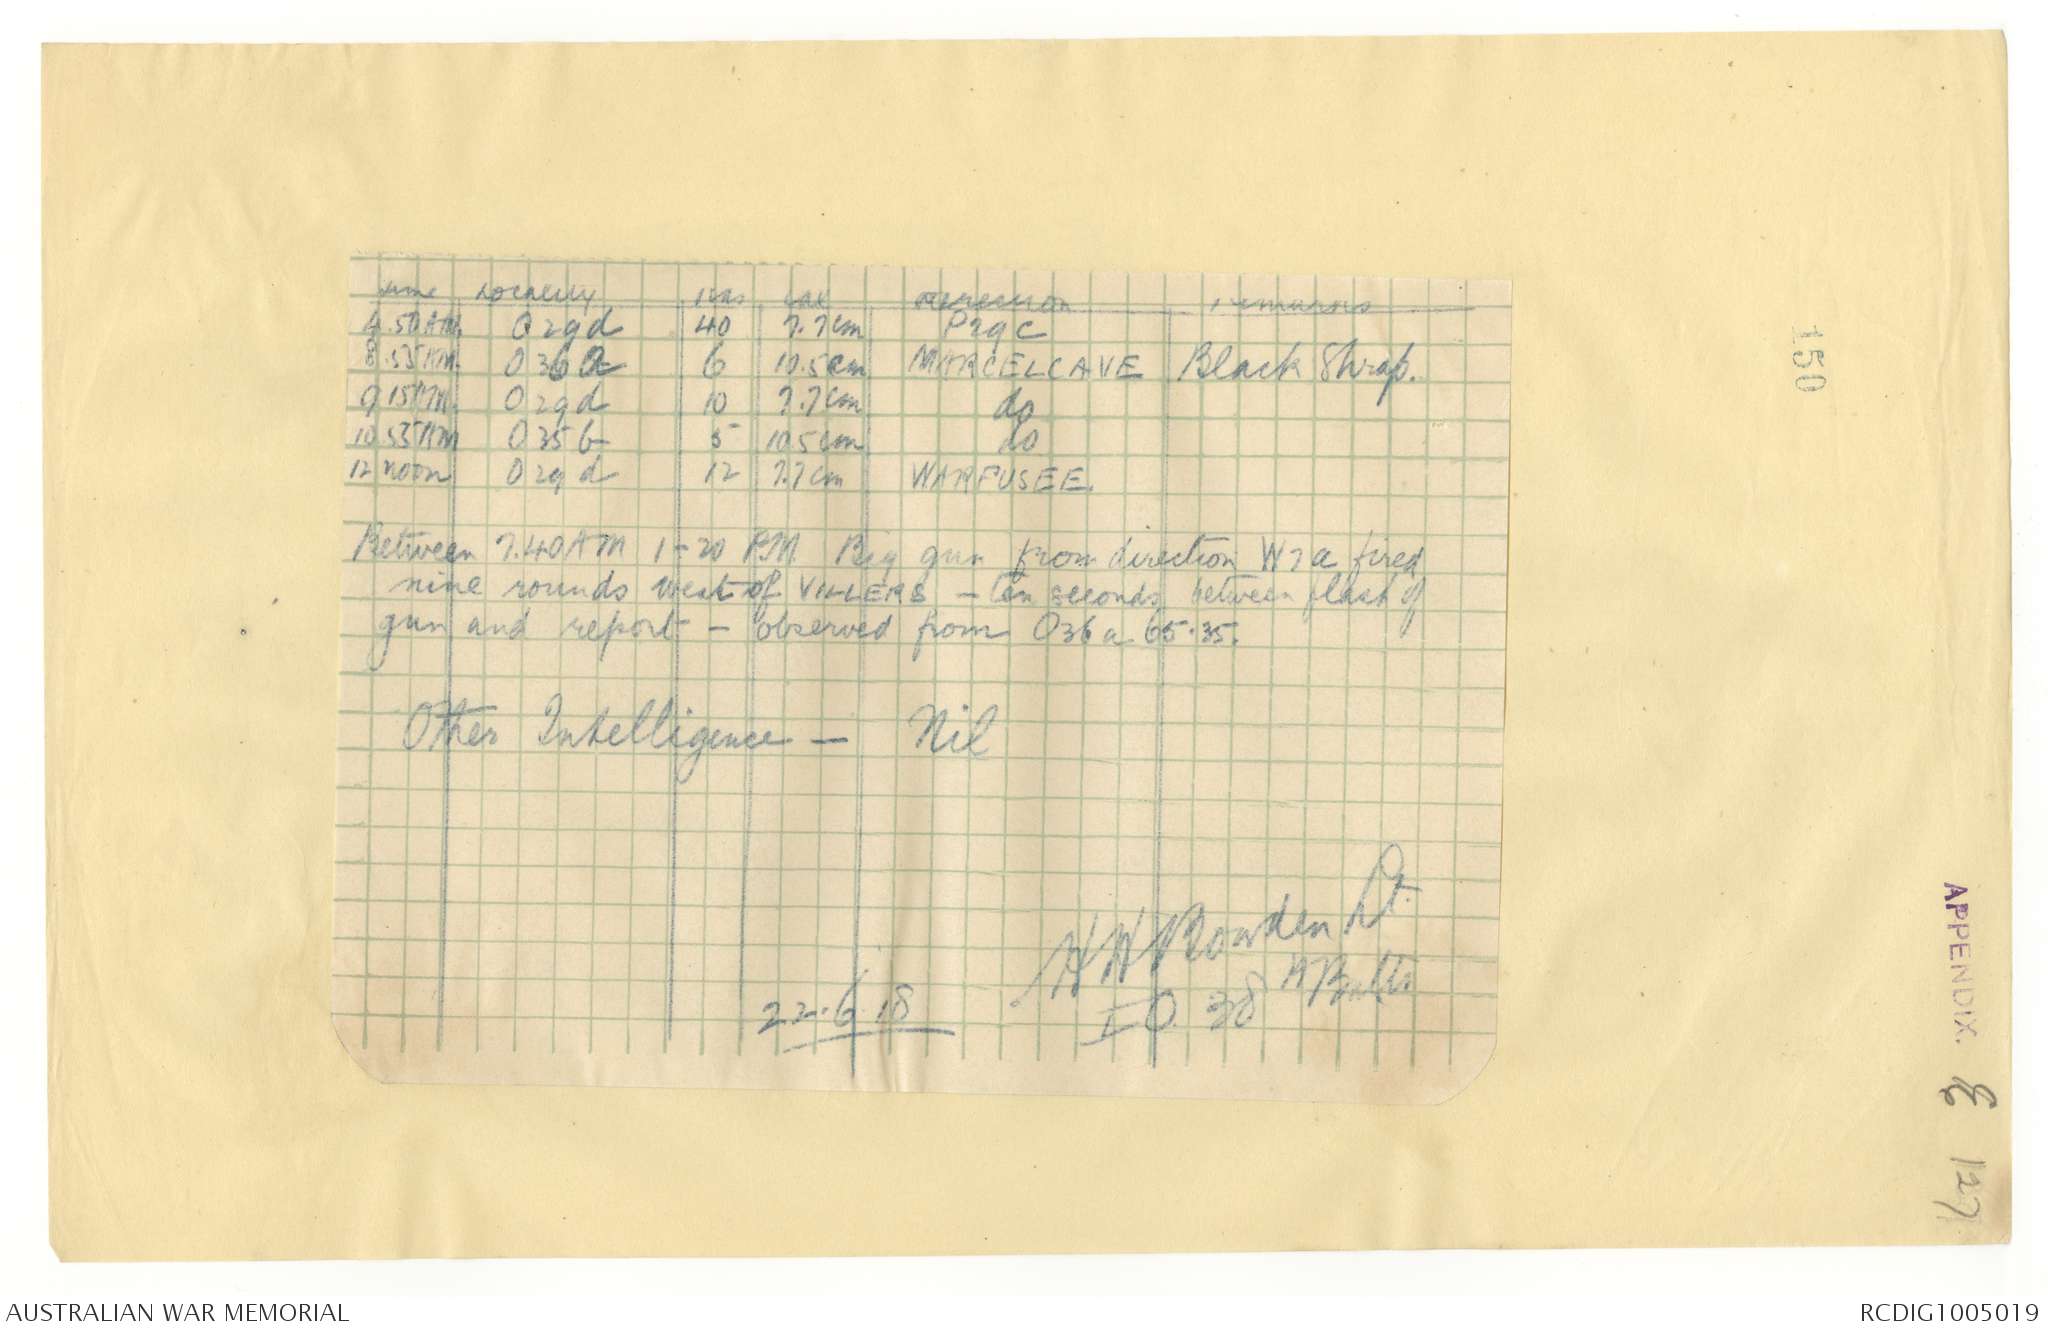 Time Locality Rds Cal Direction Remarks
4.50 AM. O29d 40 7.7cm P29c
8.55 AM. O36a 6 10.5cm MARCELCAVE Black Shrap.
9.15 AM. O29d 10 7.7cm do
10.55 AM O35b 5 10.5cm do
12 noon O29d 12 7.7cm WARFUSEE.
Between 7.40 AM 1-20 PM. Big gun from direction W7a fired
nine rounds west of VILLERS – ten seconds between flash of
gun and report – observed from O36a 65.35.
Other Intelligence – Nil
H W Rowden Lt.
IO. 38 Battn
22.6.18
150
APPENDIX. E 127
AUSTRALIAN WAR MEMORIAL
RCDIG1005019